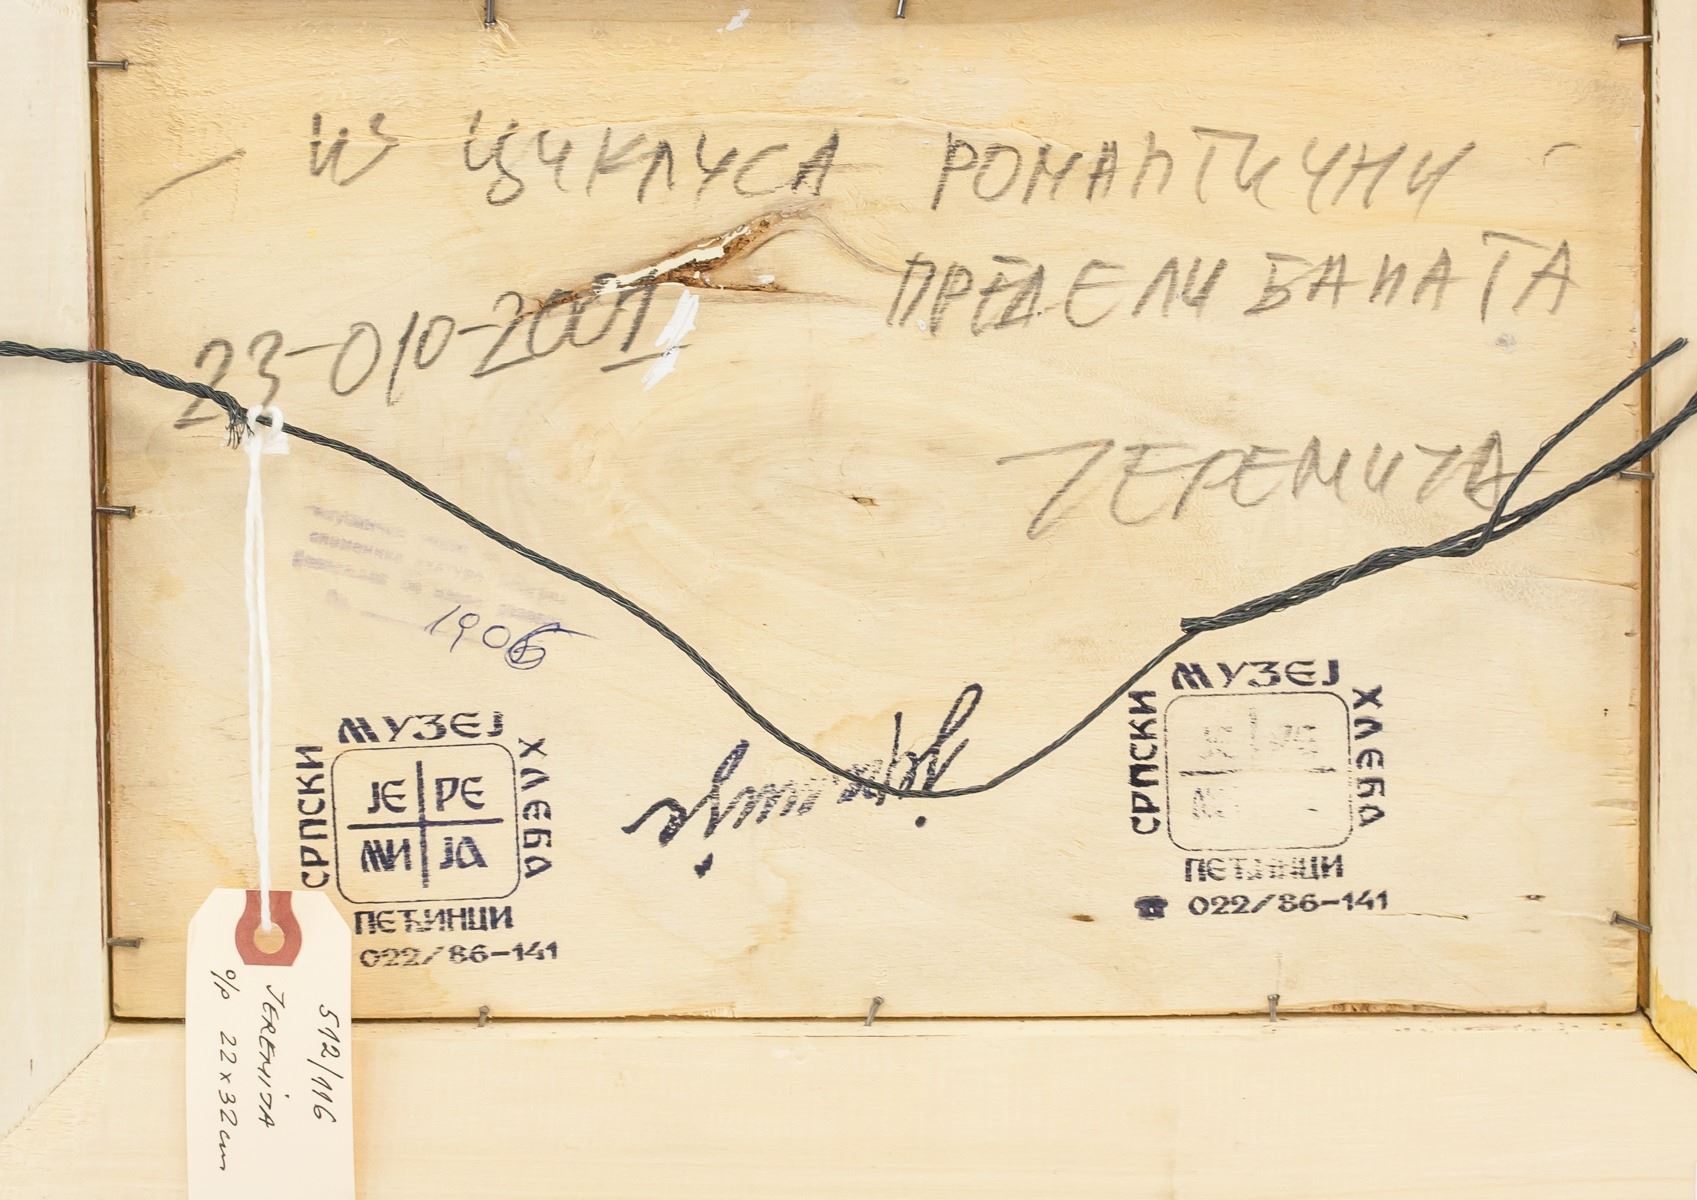 ИЗ ЦИКЛУСА РОМАНТИЧНИ
ПРЕДЕЛИ БАНАТА
23-010-2001
ЈЕРЕМИЈА
1906
СРПСКИ
МУЗЕЈ
ХЛЕБА
ЈЕ РЕ
МИ ЈА
ПЕЋИНЦИ
022/86-141
СРПСКИ
МУЗЕЈ
ХЛЕБА
ПЕЋИНЦИ
☎ 022/86-141
512/116
JEREMIJA
o/p 22x32cm